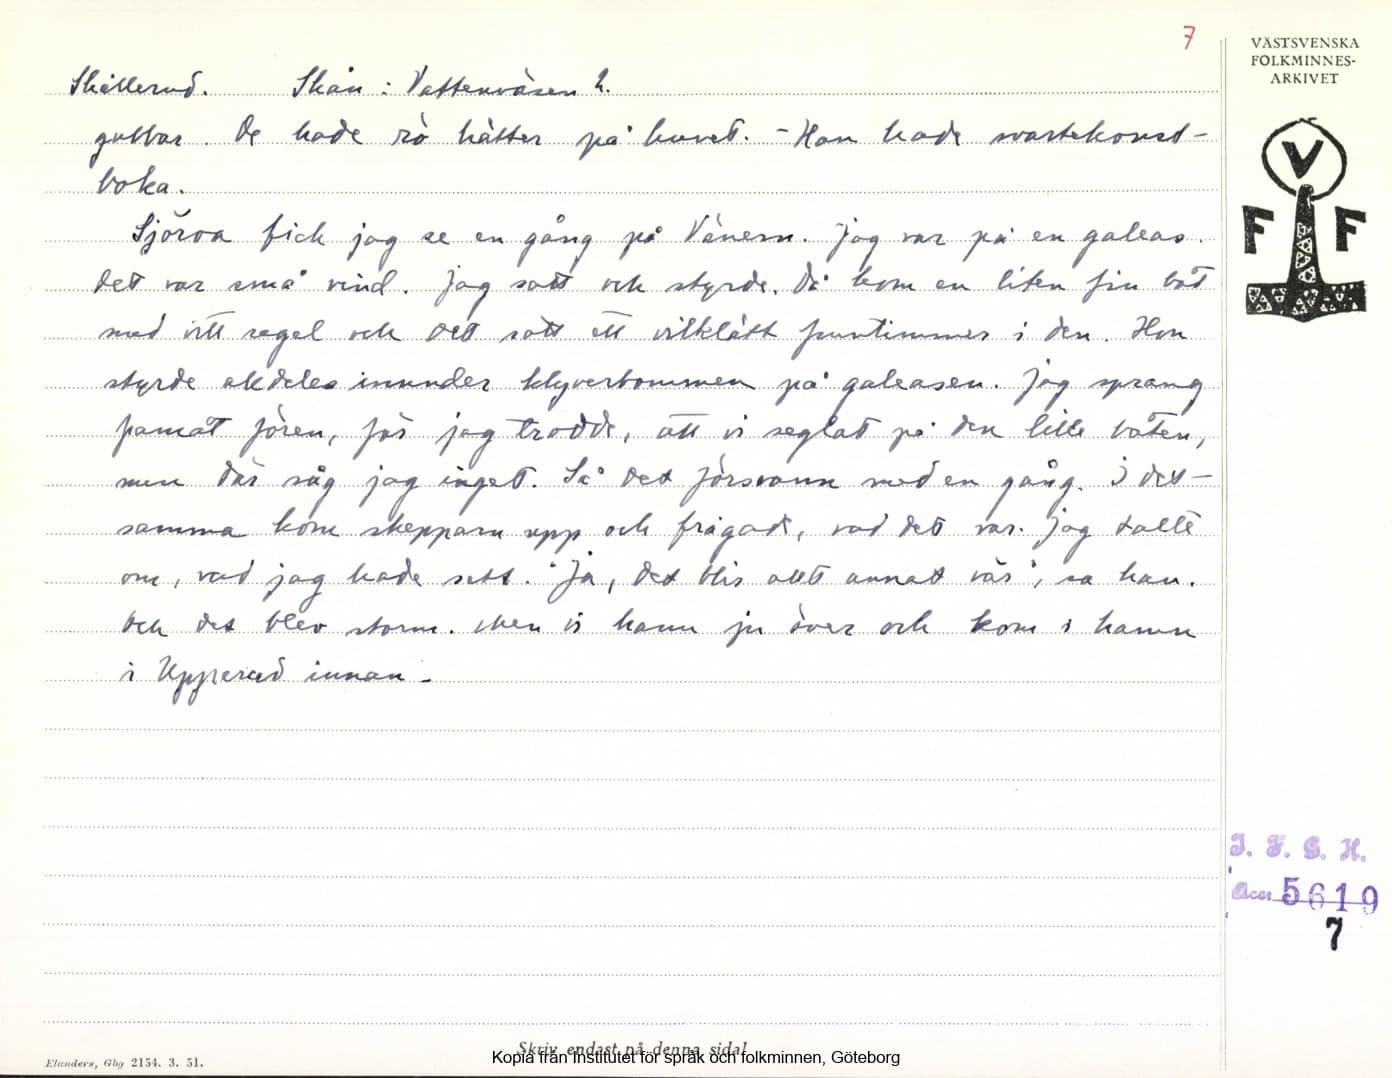 7
VÄSTSVENSKA
FOLKMINNES-
ARKIVET
Skållerud. Skån: Vattenväsen 2.
gubbar. De hade rö hätter på huvet. - Han hade svartekonst-
boka.
Sjöroa fick jag se en gång på Vänern. Jag var på en galeas.
det var små vind. Jag satt och styrde. Då kom en liten fin båt
med vitt segel och det satt ett vitklätt fruntimmer i den. Hon
styrde alldeles inunder klyverbommen på galeasen. Jag sprang
framåt fören, för jag trodde, att vi seglat på den lille båten,
men där såg jag inget. Så det försvann med en gång. I det-
samma kom skepparn upp och frågade, vad det var. Jag talte
om, vad jag hade sett. "Ja, det blir allt annat vär", sa han.
Och det blev storm. Men vi hann ju över och kom i hamn
i Upperud innan -
V
F F
I. F. G. H.
Acc. 5619
7
Skriv endast på denna sida!
Kopia från Institutet för språk och folkminnen, Göteborg
Elanders, Gbg 2154. 3. 51.